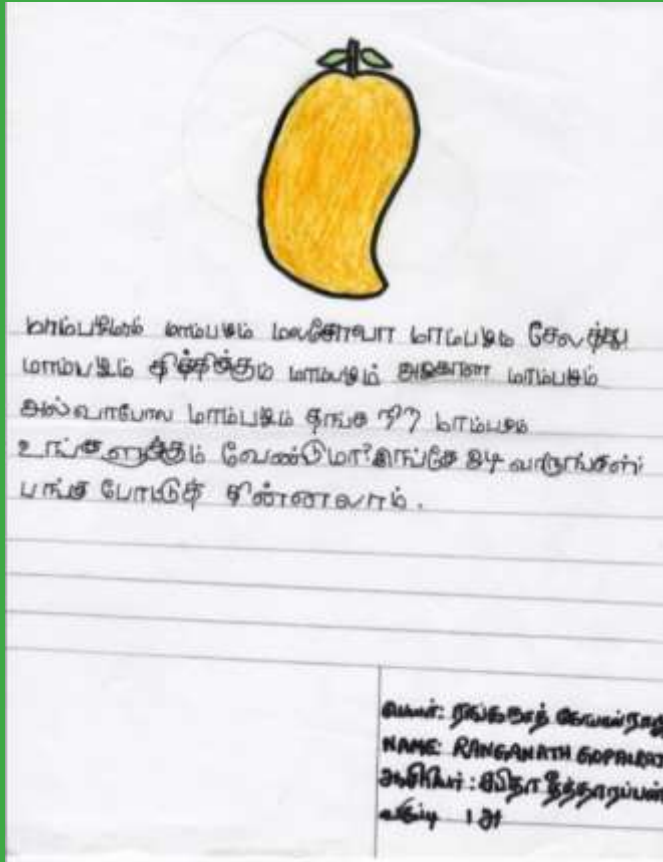 மாம்பழமாம் மாம்பழம் மல்கோவா மாம்பழம் சேலத்து
மாம்பழம் தித்திக்கும் மாம்பழம் அழகான மாம்பழம்
அல்வாபோல மாம்பழம் தங்க நிற மாம்பழம்
உங்களுக்கும் வேண்டுமா? இங்கே ஓடி வாருங்கள்
பங்கு போட்டுத் தின்னலாம்.
பெயர்: ரங்கநாத்
NAME: RANGANATH
ஆசிரியர்:
வகுப்பு 1 அ